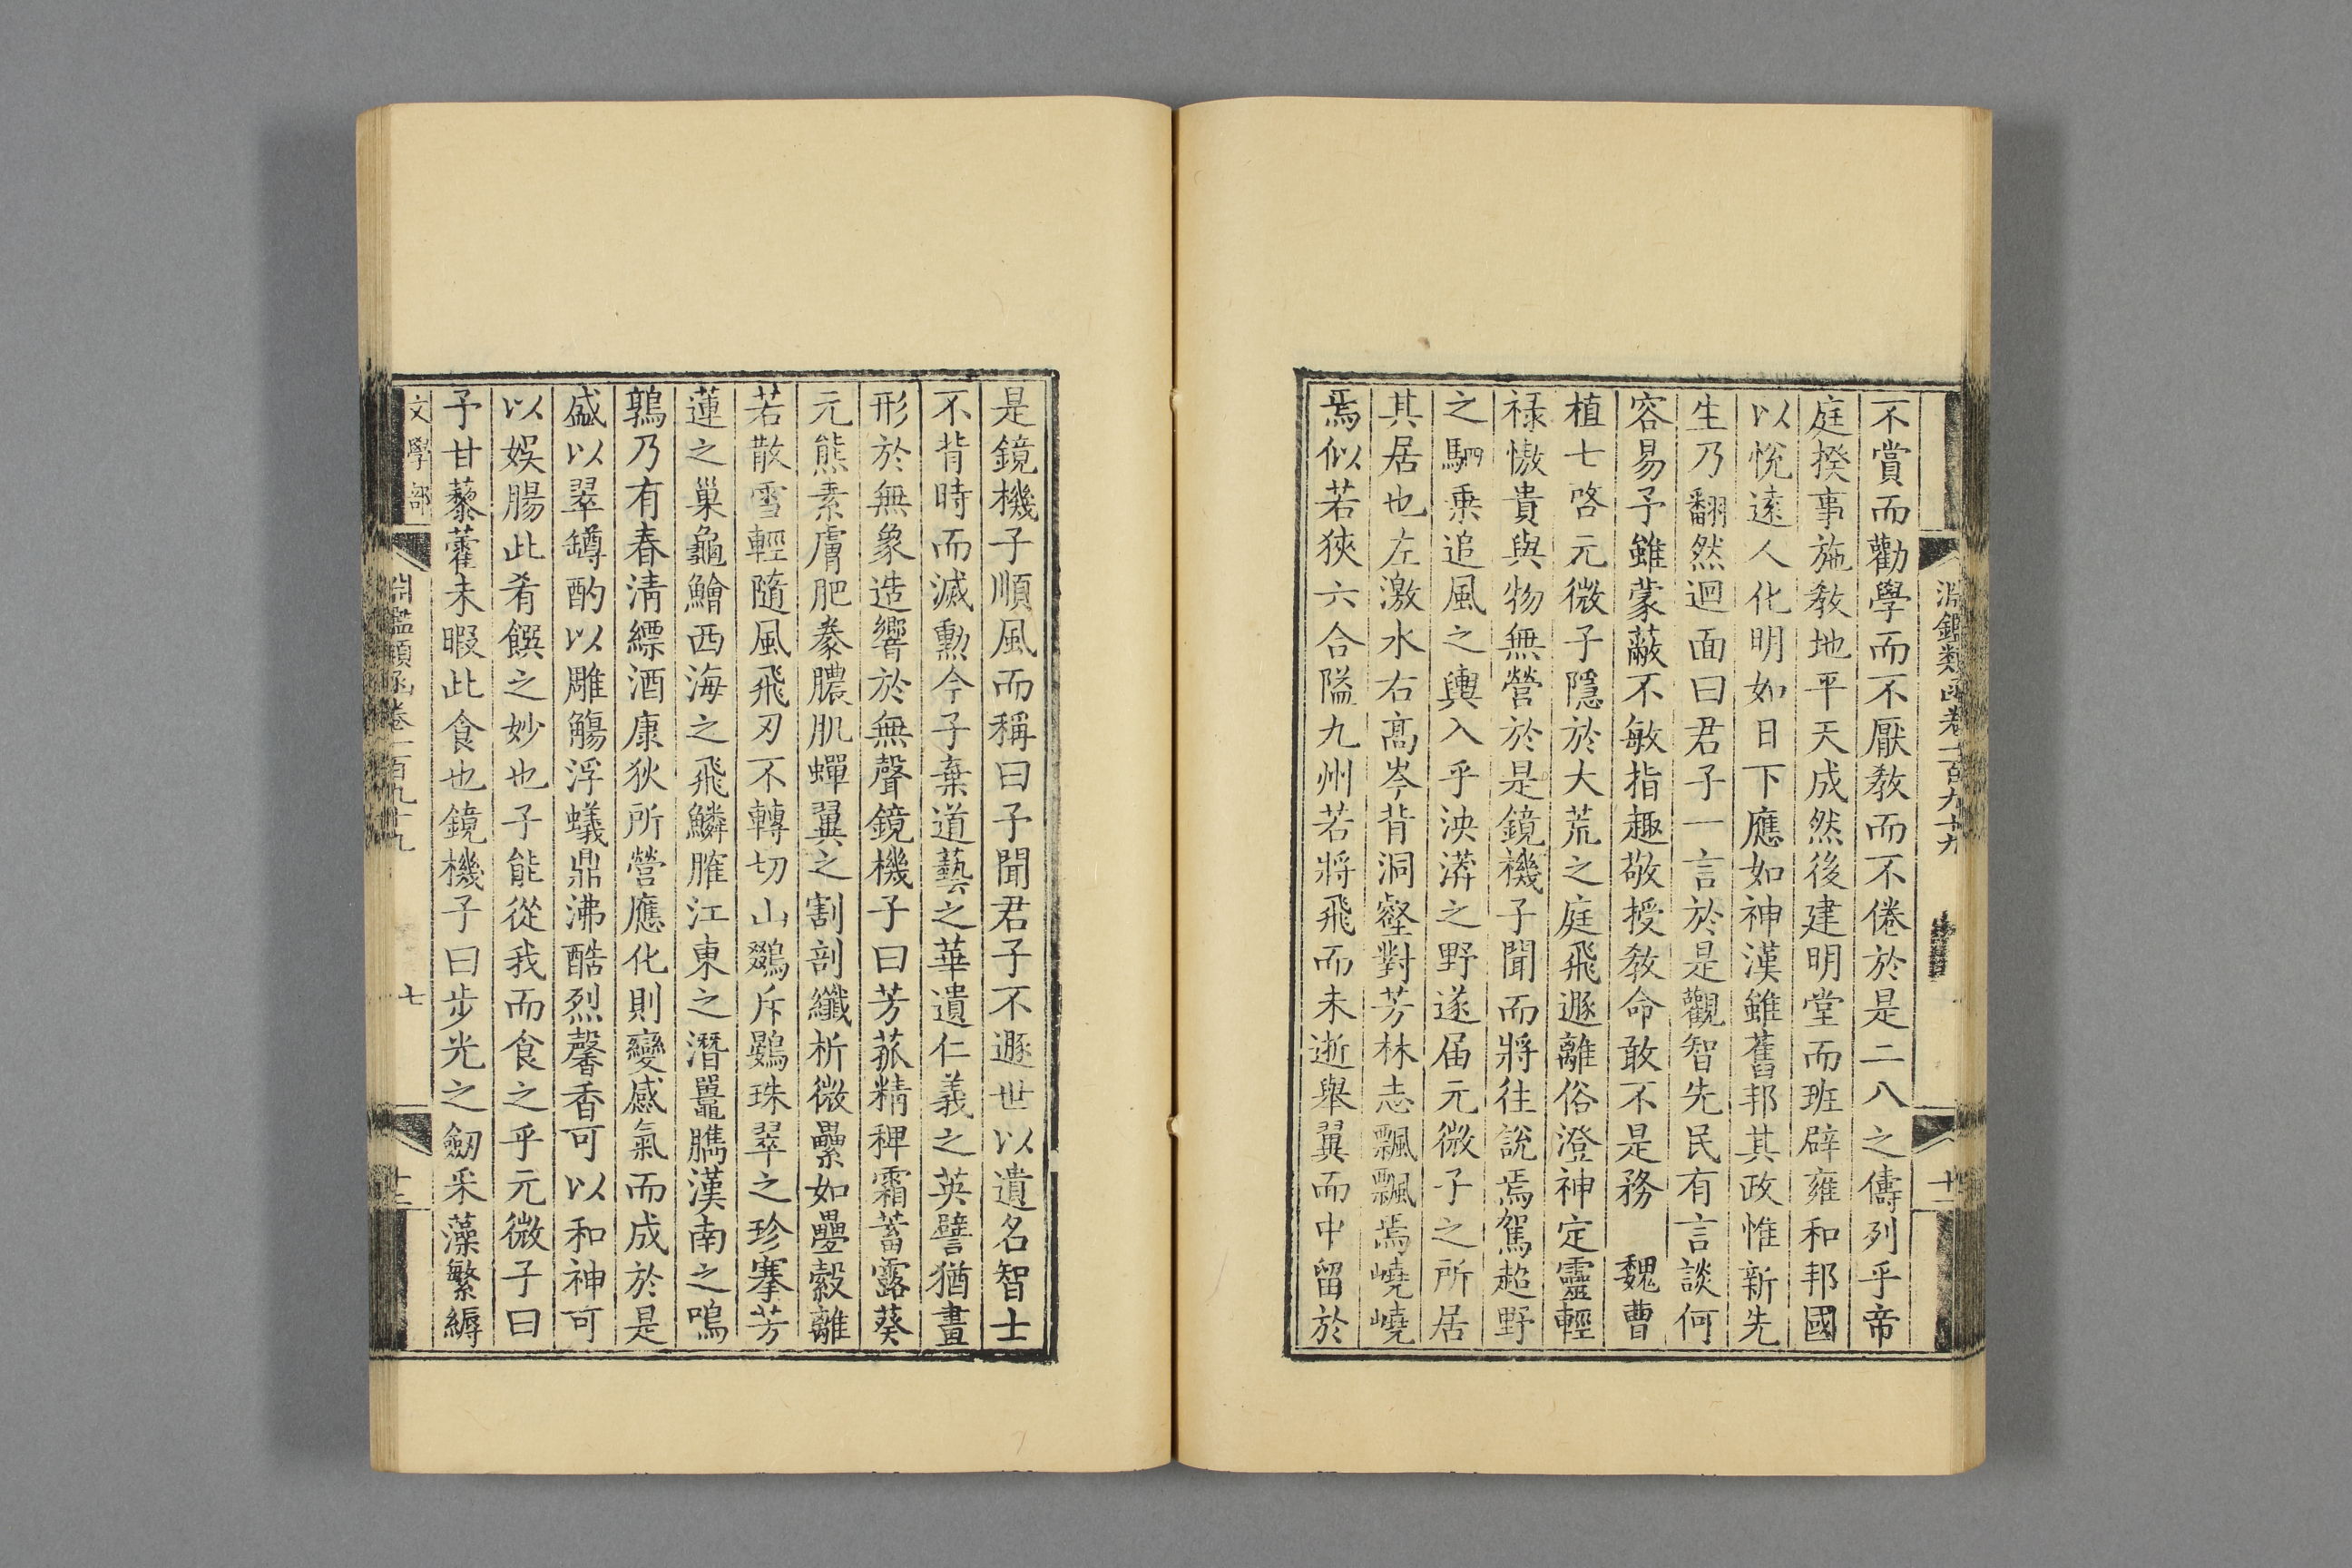 淵鑑類函卷一百九十九
不賞而勸學而不厭教而不倦於是二八之儔列乎帝
庭揆事施教地平天成然後建明堂而班辟雍和邦國
以悅遠人化明如日下應如神漢雖舊邦其政惟新先
生乃翻然迴面曰君子一言於是觀智先民有言談何
容易予雖蒙蔽不敏指趣敬授教命敢不是務 魏曹
植七啓元微子隱於大荒之庭飛遯離俗澄神定靈輕
祿慠貴與物無營於是鏡機子聞而將往說焉駕超野
之駟乗追風之輿入乎泱漭之野遂届元微子之所居
其居也左激水右高岑背洞壑對芳林志飄飄焉嶢嶢
焉似若狹六合隘九州若將飛而未逝舉翼而中留於
是鏡機子順風而稱曰予聞君子不遯世以遺名智士
不背時而滅勲今子棄道藝之華遺仁義之英譬猶畫
形於無象造響於無聲鏡機子曰芳菰精稗霜蓄露葵
元熊素膚肥豢膿肌蟬翼之割剖纖析微纍如疊縠離
若散雪輕隨風飛刃不轉切山鵽斥鷃珠翠之珍搴芳
蓮之巢龜鱠西海之飛鱗臛江東之潛鼉臇漢南之鳴
鶉乃有春清縹酒康狄所營應化則變感氣而成於是
盛以翠罇酌以雕觴浮蟻鼎沸酷烈馨香可以和神可
以娛腸此肴饌之妙也子能從我而食之乎元微子曰
予甘藜藿未暇此食也鏡機子曰步光之劒采藻繁縟
文學部
淵鑑類函卷一百九十九
七